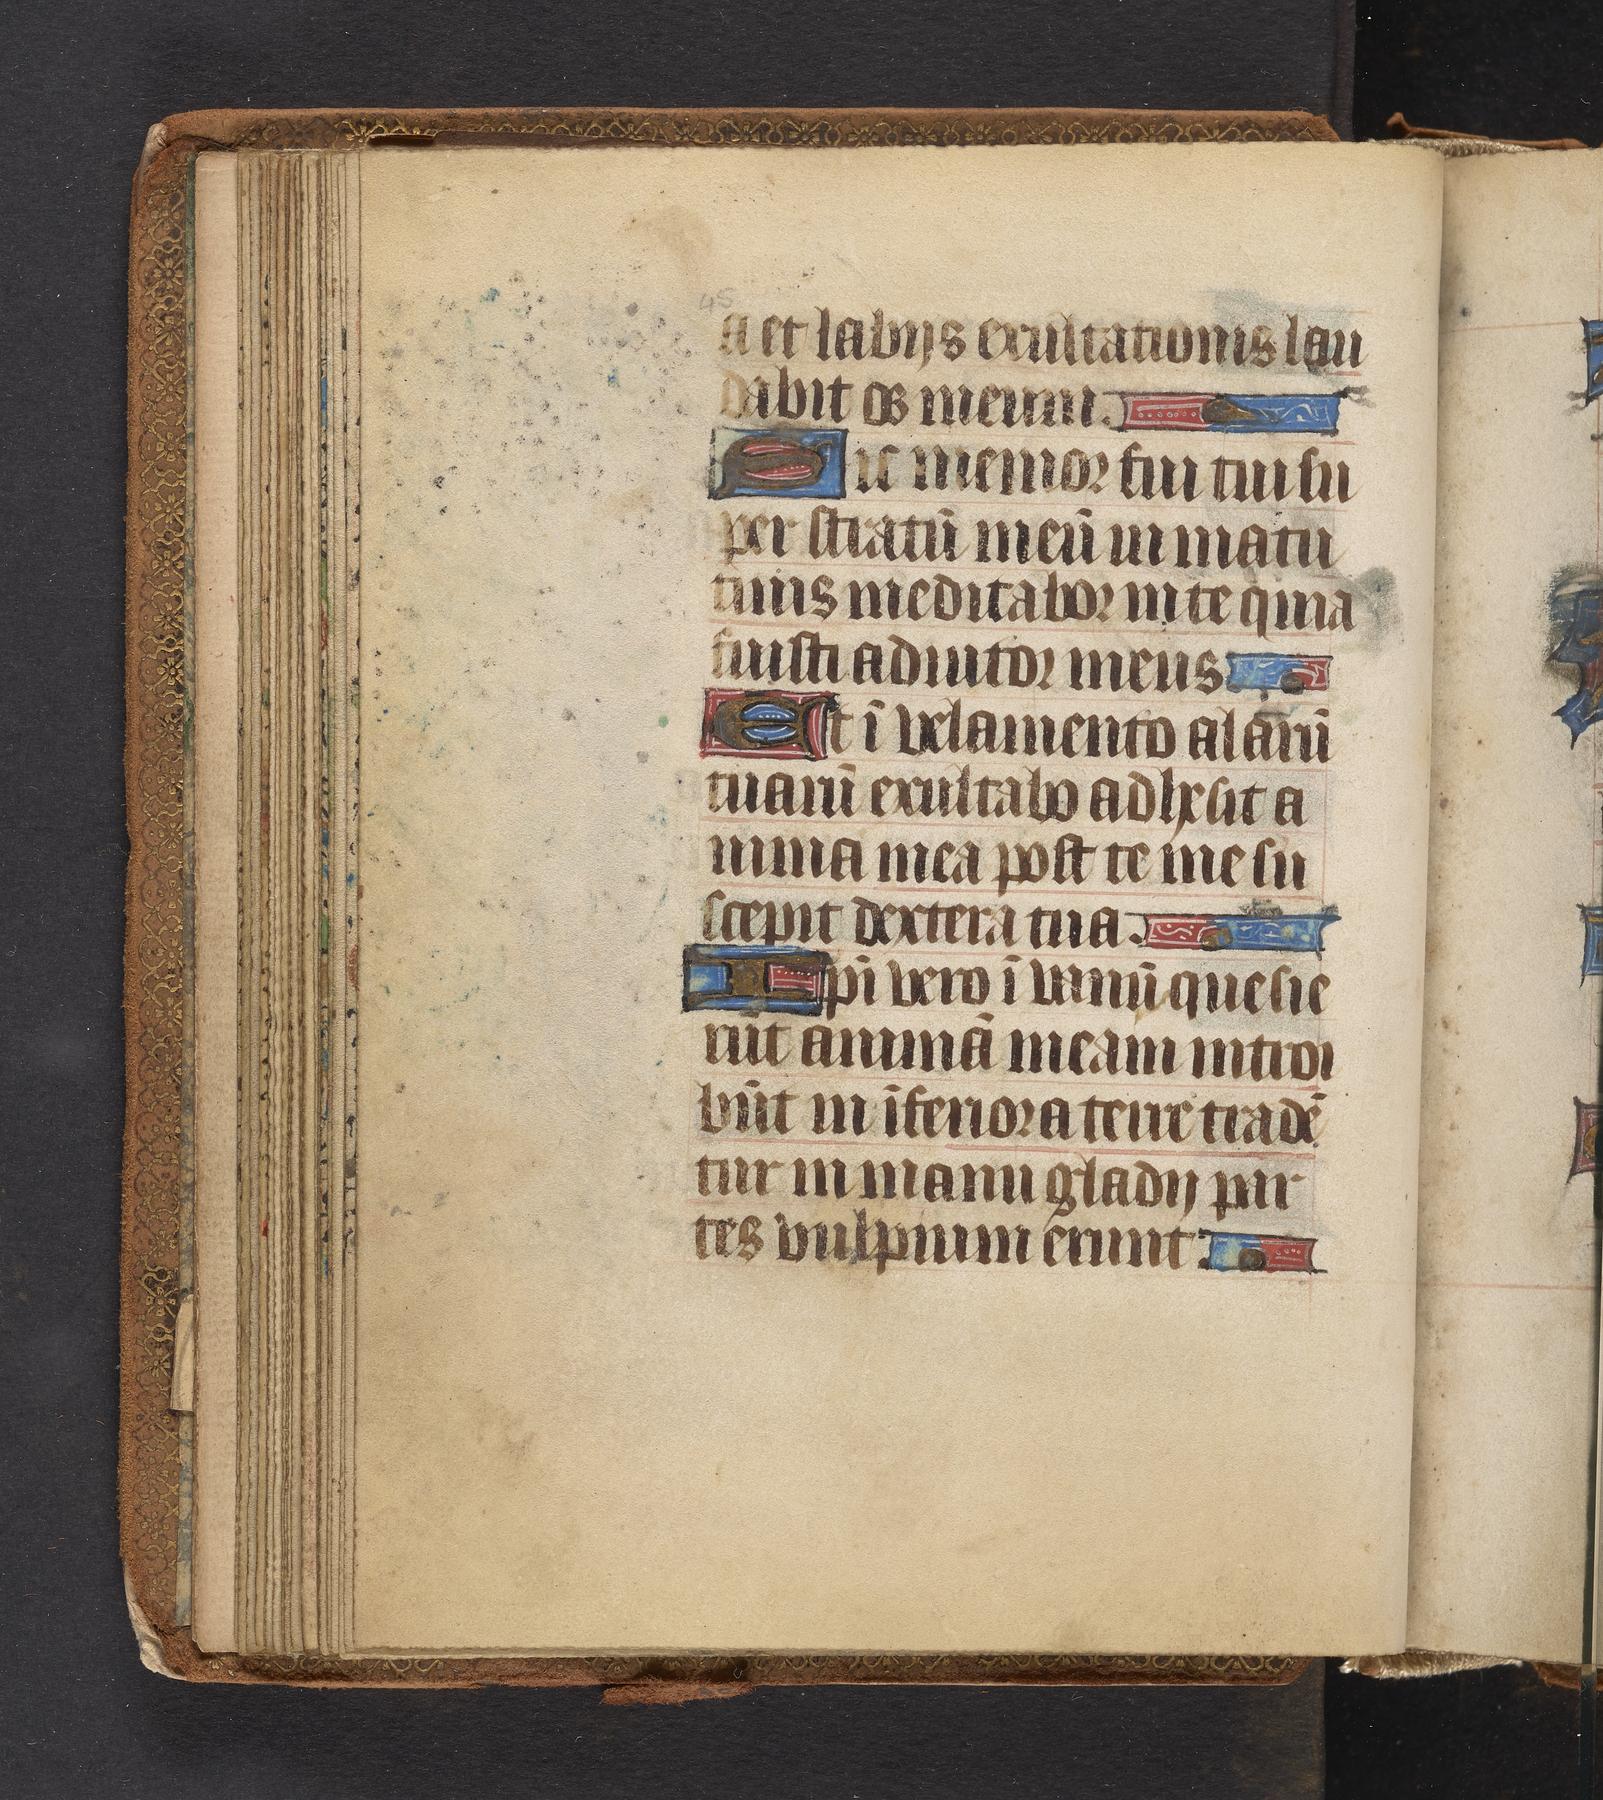 45
a et labijs exultationis lau
dabit os meum.
Sic memor fui tui su
per stratū meū in matu
tinis meditabor in te quia
fuisti adiutor meus.
Et ī velamento alarū
tuarū exultabo adhesit a
nima mea post te me su
scepit dextera tua.
Ipī vero ī vanū quesie
rūt animā meam introi
būt in īferiora terre tradē
tur in manu gladij par
tes vulpium erunt.